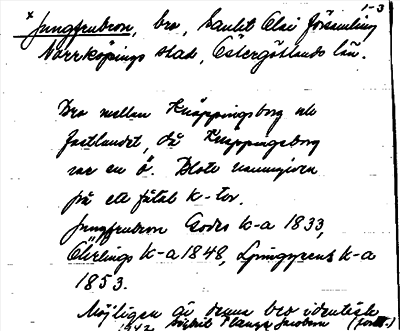 1-3
x Jungfrubron, bro, Sankt Olai församling
Norrköpings stad, Östergötlands län.
Bro mellan Knäppingsborg och
fastlandet, då Knäppingsborg
var en ö. Blott namngiven
på ett fåtal k-tor.
Jungfrubron Godes k-a 1833,
Öhrlings k-a 1848, Ljunggrens k-a
1853.
Möjligen är denna bro identisk
1942 (forts.)